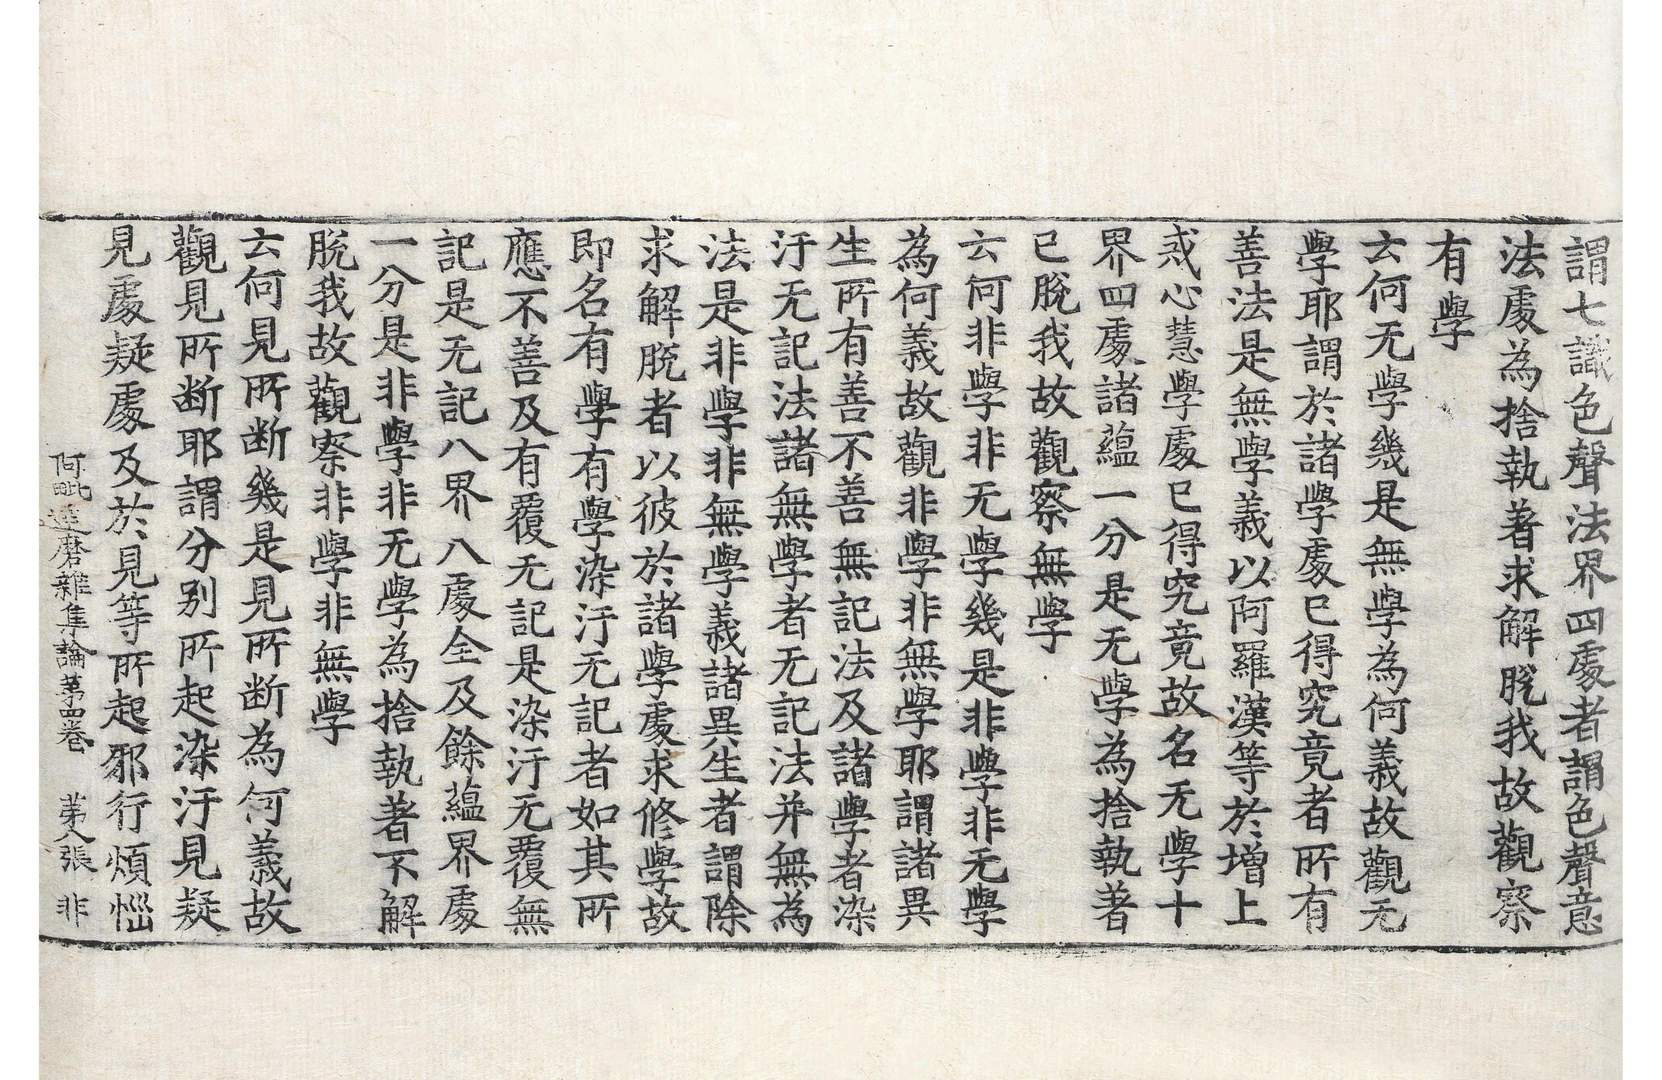 謂七識色聲法界四處者謂色聲意
法處為捨執著求解脫我故觀察
有學
云何无學幾是無學為何義故觀无
學耶謂於諸學處已得究竟者所有
善法是無學義以阿羅漢等於增上
戒心慧學處已得究竟故名无學十
界四處諸蘊一分是无學為捨執著
已脫我故觀察無學
云何非學非无學幾是非學非无學
為何義故觀非學非無學耶謂諸異
生所有善不善無記法及諸學者染
汙无記法諸無學者无記法并無為
法是非學非無學義諸異生者謂除
求解脫者以彼於諸學處求修學故
即名有學有學染汙无記者如其所
應不善及有覆无記是染汙无覆無
記是无記八界八處全及餘蘊界處
一分是非學非无學為捨執著不解
脫我故觀察非學非無學
云何見所断幾是見所断為何義故
觀見所断耶謂分別所起染汙見疑
見處疑處及於見等所起邪行煩惱
阿毗達磨雜集論第四卷 第八張 非